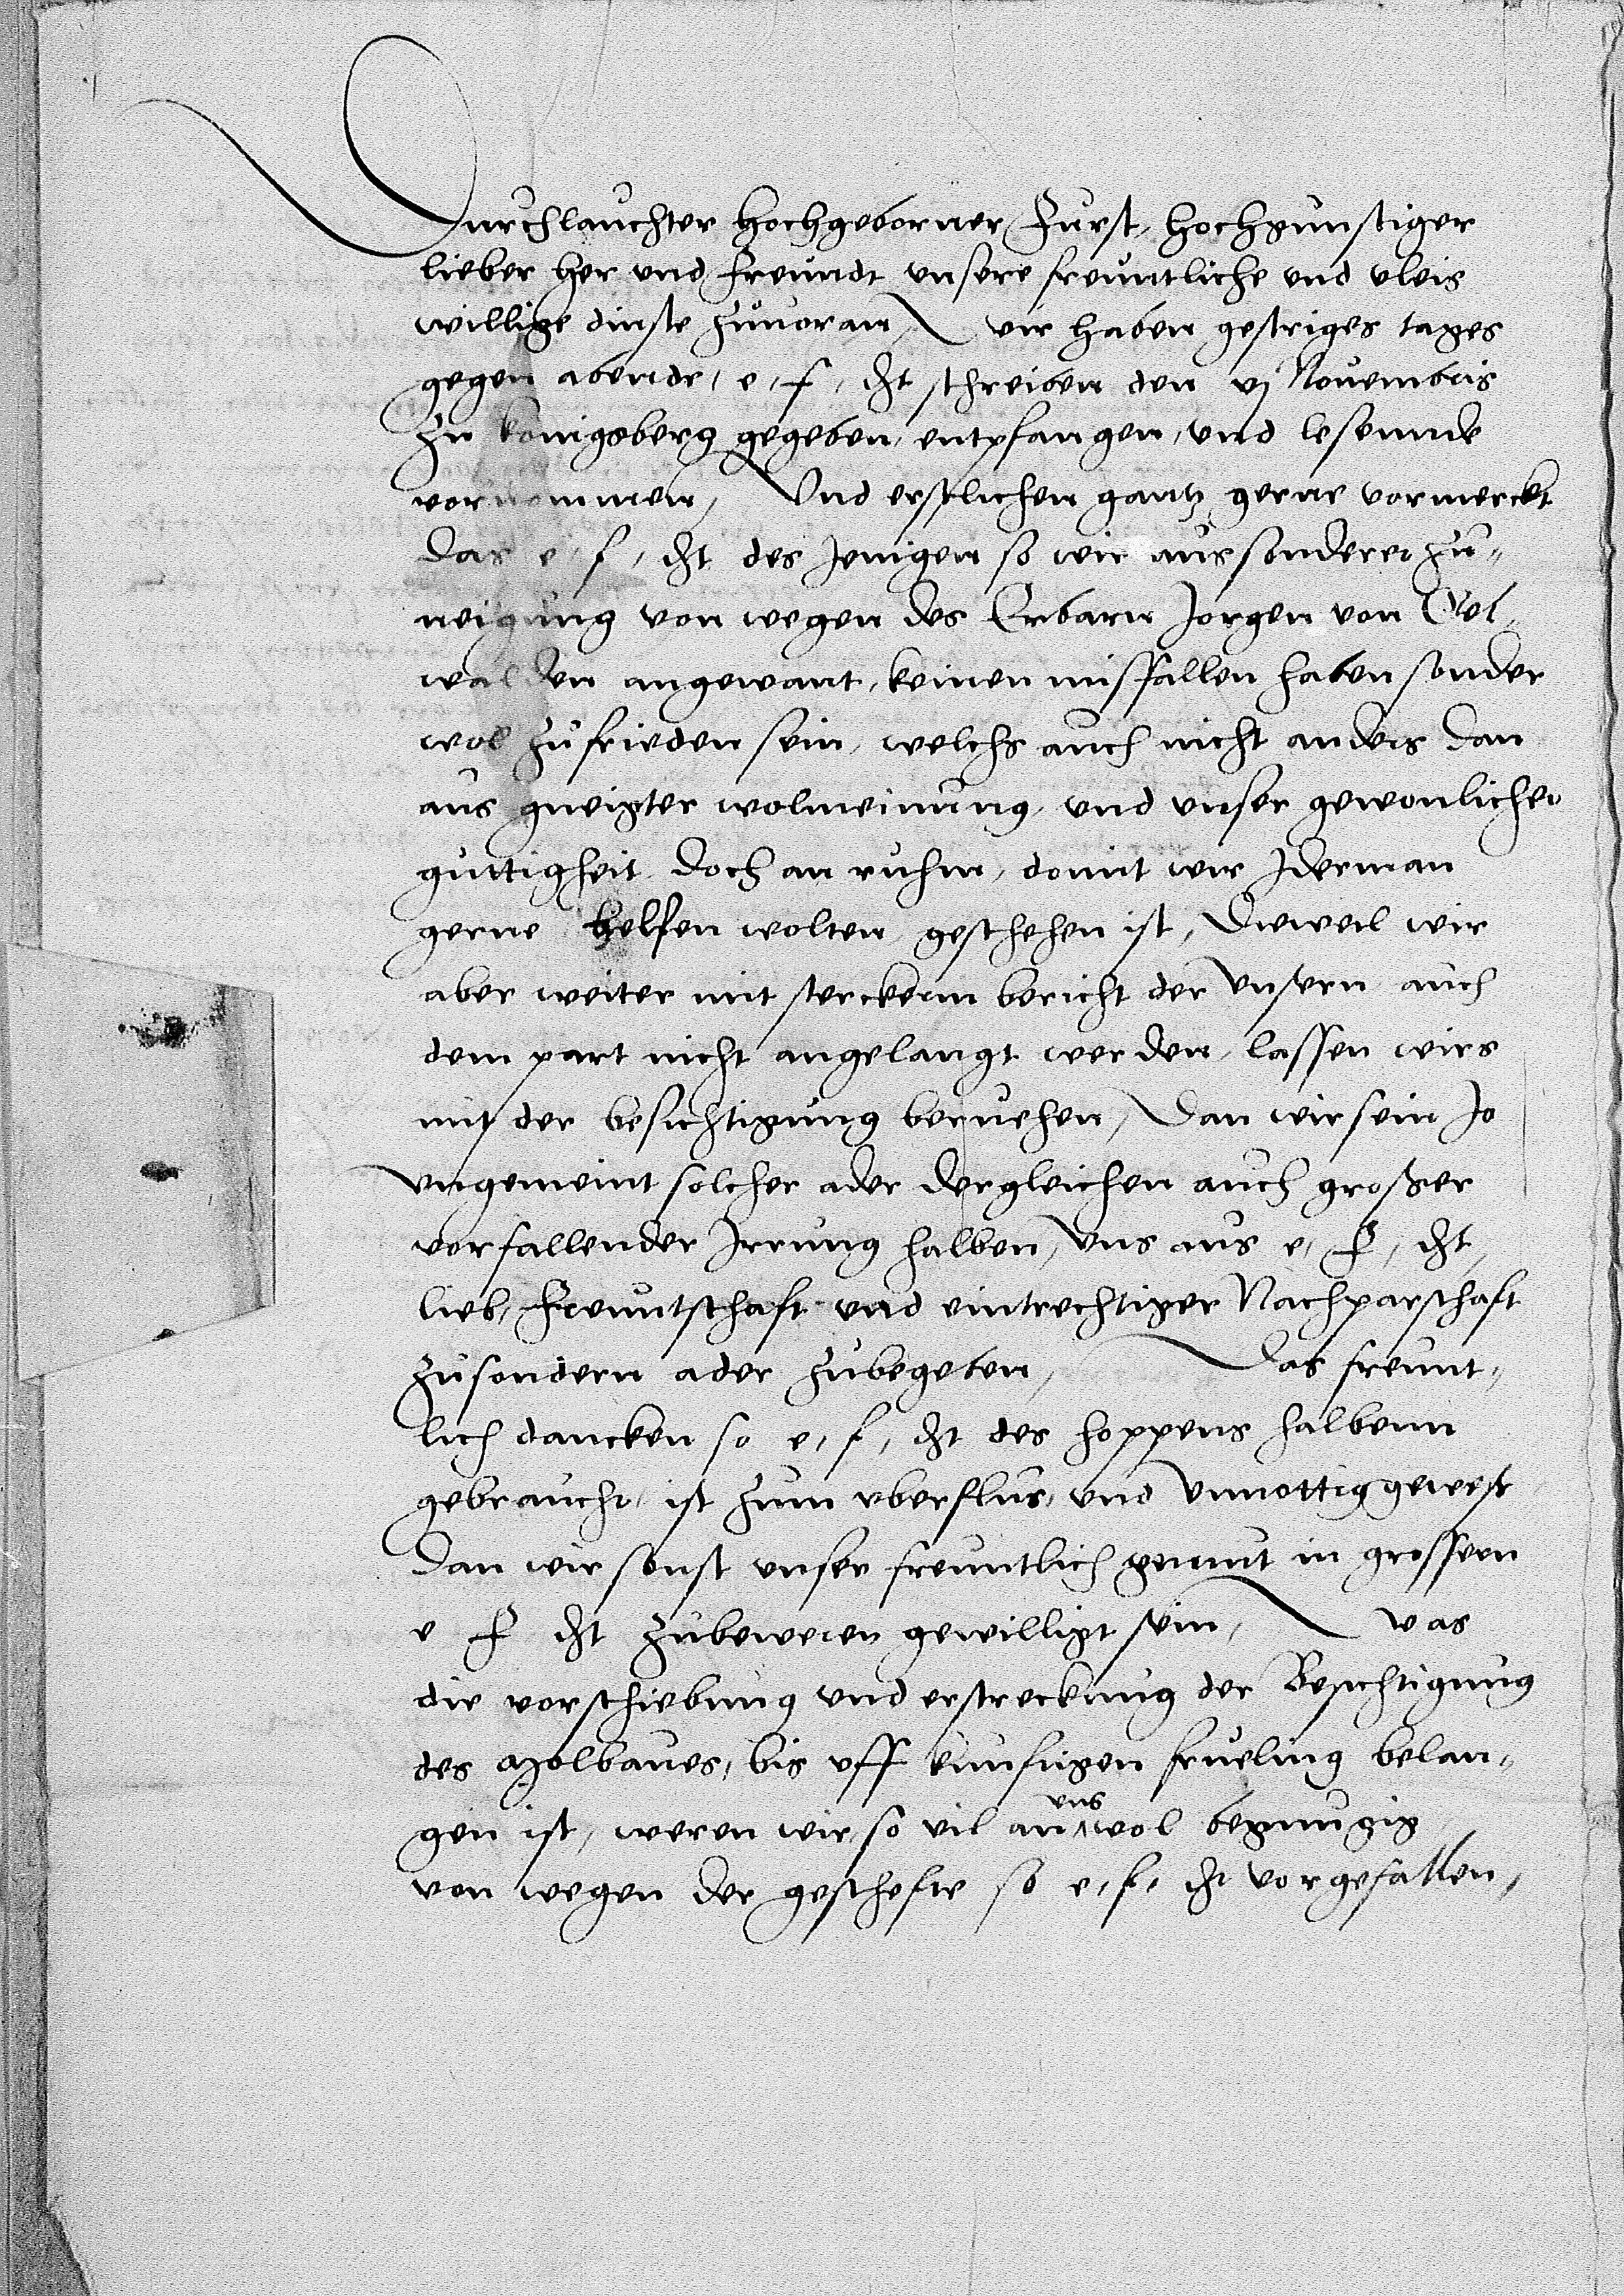 Durchlauchter Hochgeborner Furst, hochgunstiger
lieber her vnd freundt vnsere freuntliche vnd vleis
willige dinste zuuoran, wir haben gestriges tages
gegen abendt, e, f, dht schreiben den vj Nouembris
zu konigsberg gegeben, entpfangen, vnd lesennde
vornommen, Vnd erstlichen gantz gerne vormerckt
das e, f, dht des jenigen so wir aus sonderer zu„
neigung von wegen des Erbarn Jorgen von
walden angewant, keinen missfallen haben sonder
wol zufrieden sein, welchs auch nicht anders dan
aus gneigter wolmeinung, vnd vnser gewonlicher
guttigheit doch an ruhm, domit wir Jderman
gerne helfen wolten, geschehen ist, Dieweil wir
aber weiter mit sterckerm bericht der vnsern auch
dem part nicht angelangt werden, lassen wirs
mit der besichtigung beruehen, Dan wir sein Jo
vngemeint solcher ader dergleichen auch großer
vorfallender Jrrung halben, Vns aus e, f, dht,
lieb, freuntschaft vnd eintrechtiger Nachparschaft
zusondern ader zubegeben, Das freunt„
lich dancken so e, f, dht des hoppens halbenn
gebraucht, ist zum vberflus, vnd Vnnottig gewest
Dan wir sonst vnser freuntlich gemut in grossern
e f dht zubeweren gewilligt sein, was
die vorschiebung vnd erstreckung der Besichtigung
des bis vff kunftigen frueling belan„
gen ist, weren wir, so vil an vns wol begnugig
von wegen der geschefte so e, f, dht vorgefallen,